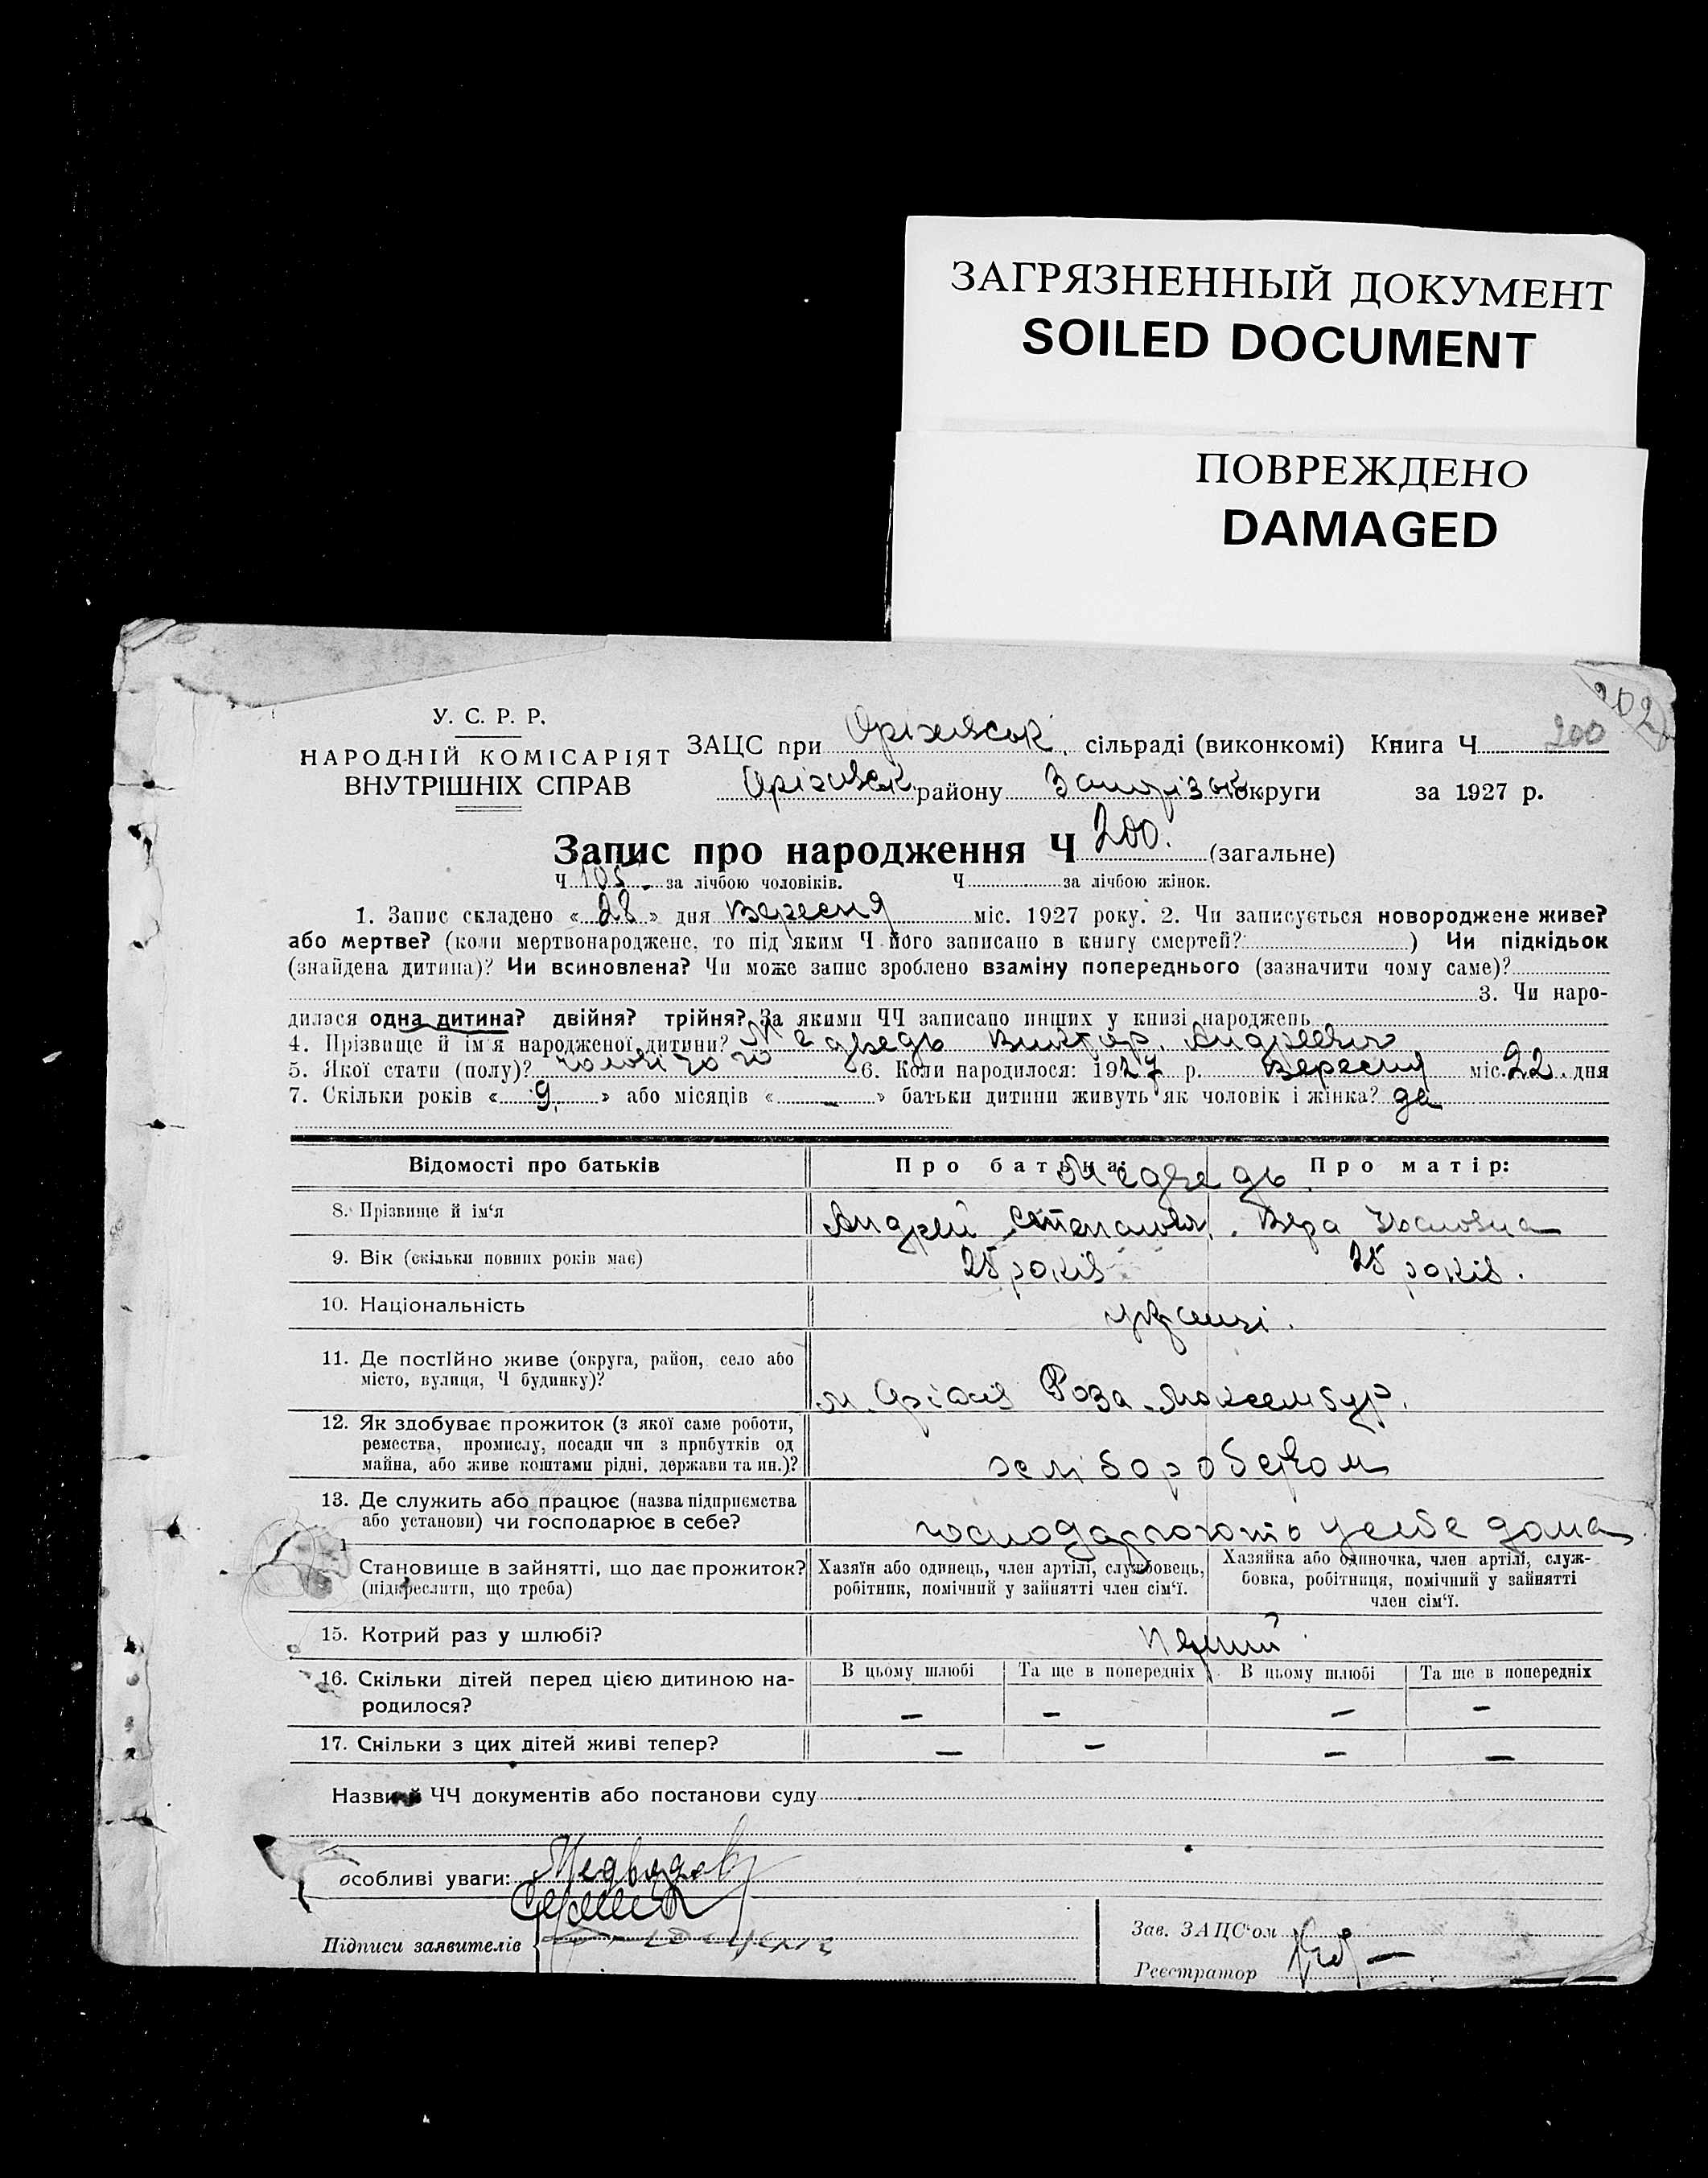 ЗАГРЯЗНЕННЫЙ ДОКУМЕНТ
SOILED DOCUMENT
ПОВРЕЖДЕНО
DAMAGED
202
У. С. Р. Р.
НАРОДНІЙ КОМІСАРІЯТ
ВНУТРІШНІХ СПРАВ
ЗАЦС при Оріхівськ. сільраді (виконкомі) Книга Ч 200
Оріхівськ. району Запорізьк округи за 1927 р.
Запис про народження Ч 200. (загальне)
Ч 105 за лічбою чоловіків. Ч за лічбою жінок.
1. Запис складено « 28 » дня Вересня міс. 1927 року. 2. Чи записується новороджене живе?
або мертве? (коли мертвонароджене, то під яким Ч його записано в книгу смертей? ) Чи підкідьок
(знайдена дитина)? Чи всиновлена? Чи може запис зроблено взаміну попереднього (зазначити чому саме)?
3. Чи наро-
дилася одна дитина? двійня? трійня? За якими ЧЧ записано инших у книзі народжень
4. Прізвище й ім'я народженої дитини? Медведь Виктор Андрієвич
5. Якої стати (полу)? чоловічого 6. Коли народилося: 1927 р. Вересня міс. 22. дня
7. Скільки років « 9. » або місяців « — » батьки дитини живуть як чоловік і жінка? да
Відомості про батьків Про батька: Про матір:
Медведь
8. Прізвище й ім'я Андрей Степанов. Вера
9. Вік (скільки повних років має) 25 років 25 років.
10. Національність українці.
11. Де постійно живе (округа, район, село або
місто, вулиця, Ч будинку)?
м. Оріхів Роза Люксембур.
12. Як здобуває прожиток (з якої саме роботи,
ремества, промислу, посади чи з прибутків од
майна, або живе коштами рідні, держави та ин.)?
хліборобством
13. Де служить або працює (назва підприємства
або установи) чи господарює в себе?
господарюють у себе дома
Становище в зайнятті, що дає прожиток?
(підкреслити, що треба)
Хазяїн або одинець, член артілі, службовець,
робітник, помічний у зайнятті член сім'ї.
Хазяйка або одиночка, член артілі, служ-
бовка, робітниця, помічний у зайнятті
член сім'ї.
15. Котрий раз у шлюбі? перший
16. Скільки дітей перед цією дитиною на-
родилося?
В цьому шлюбі Та ще в попередніх В цьому шлюбі Та ще в попередніх
— — — —
17. Скільки з цих дітей живі тепер? — — — —
Назви й ЧЧ документів або постанови суду
особливі уваги:
Підписи заявителів
Зав. ЗАЦС'ом
Реєстратор